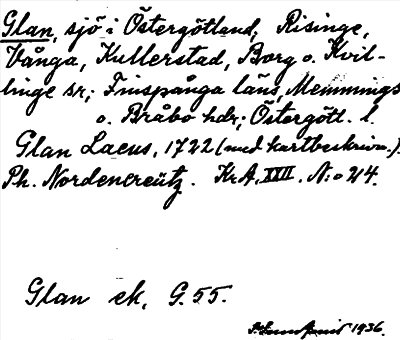 Glan, sjö i Östergötland, Risinge,
Vånga, Kullerstad, Borg o. Kvil-
linge sr; Finspånga läns, Memmings
o. Bråbo hdr; Östergötl. l.
Glan Lacus, 1722 (med kartbeskrivn.).
Ph. Nordencreütz. Kr A. XXII. N:o 214.
Glan ek, G. 55.
1936.